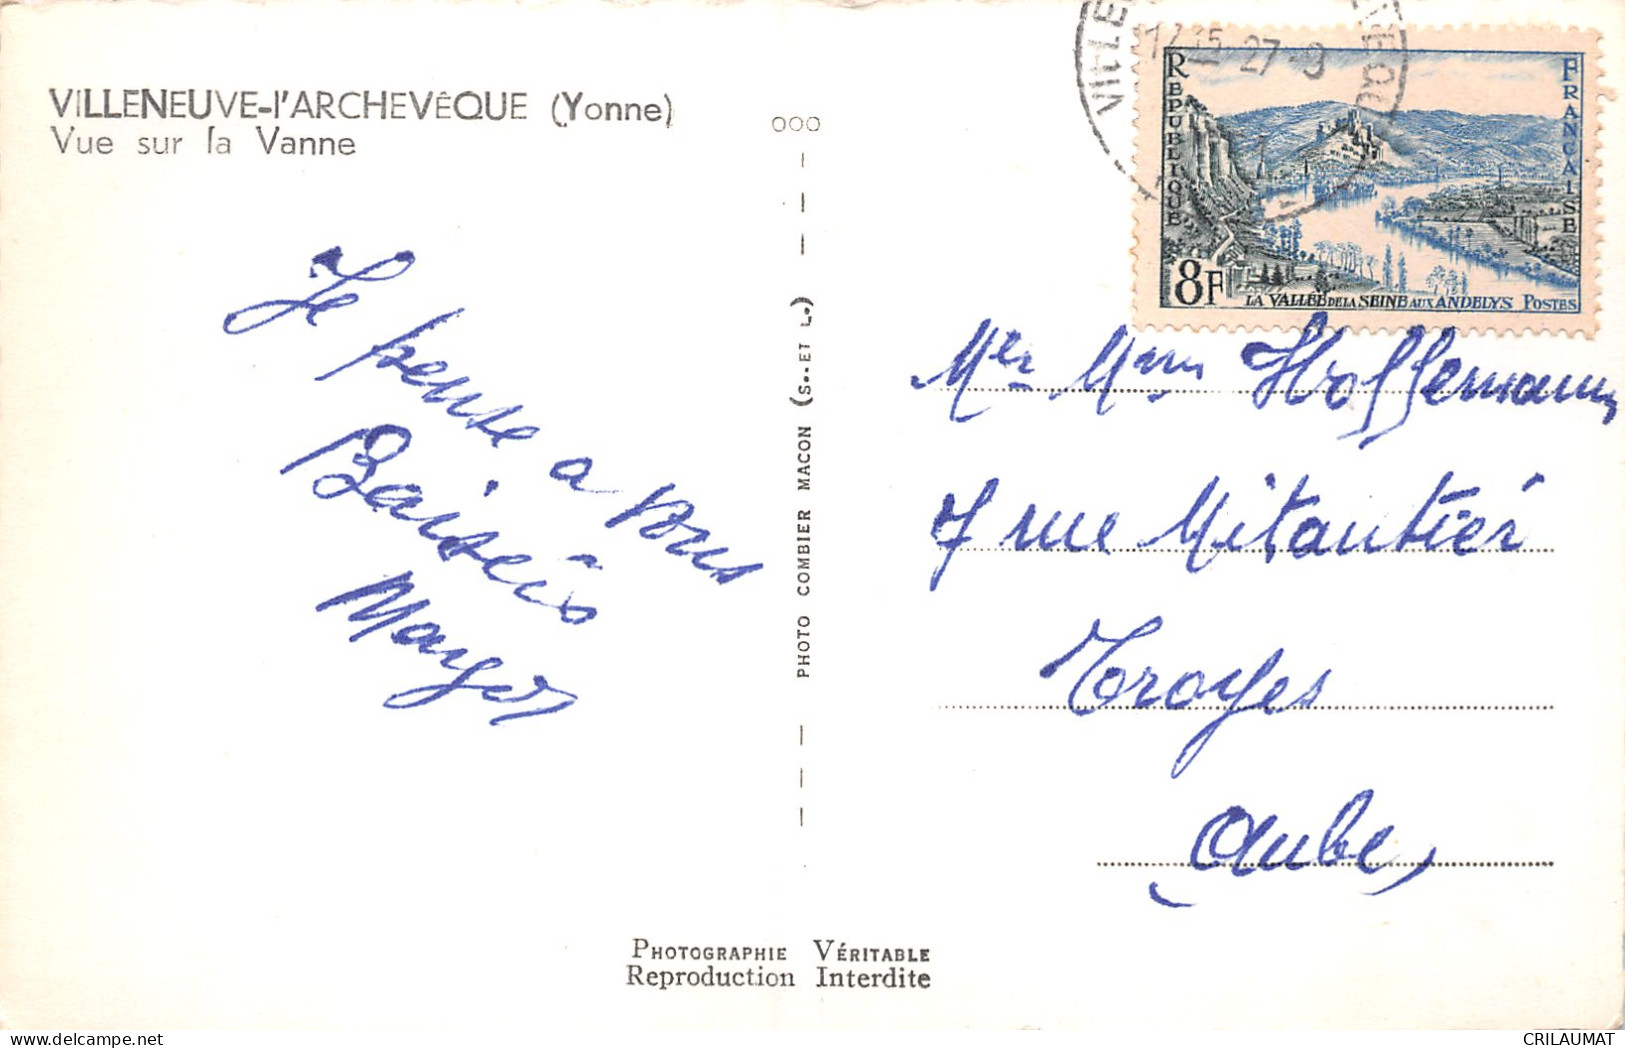 VILLENEUVE-l'ARCHEVÊQUE (Yonne)
Vue sur la Vanne
ooo
Je pense a vous
Baisers
PHOTO COMBIER MACON (S.. ET L.)
17 15 27-9
REPUBLIQUE
FRANCAISE
8F
LA VALLÉE DE LA SEINE AUX ANDELYS POSTES
Mer Mme Hoffemann
7 rue Mitantier
Troyes
Aube,
PHOTOGRAPHIE VÉRITABLE
Reproduction Interdite
CRILAUMAT